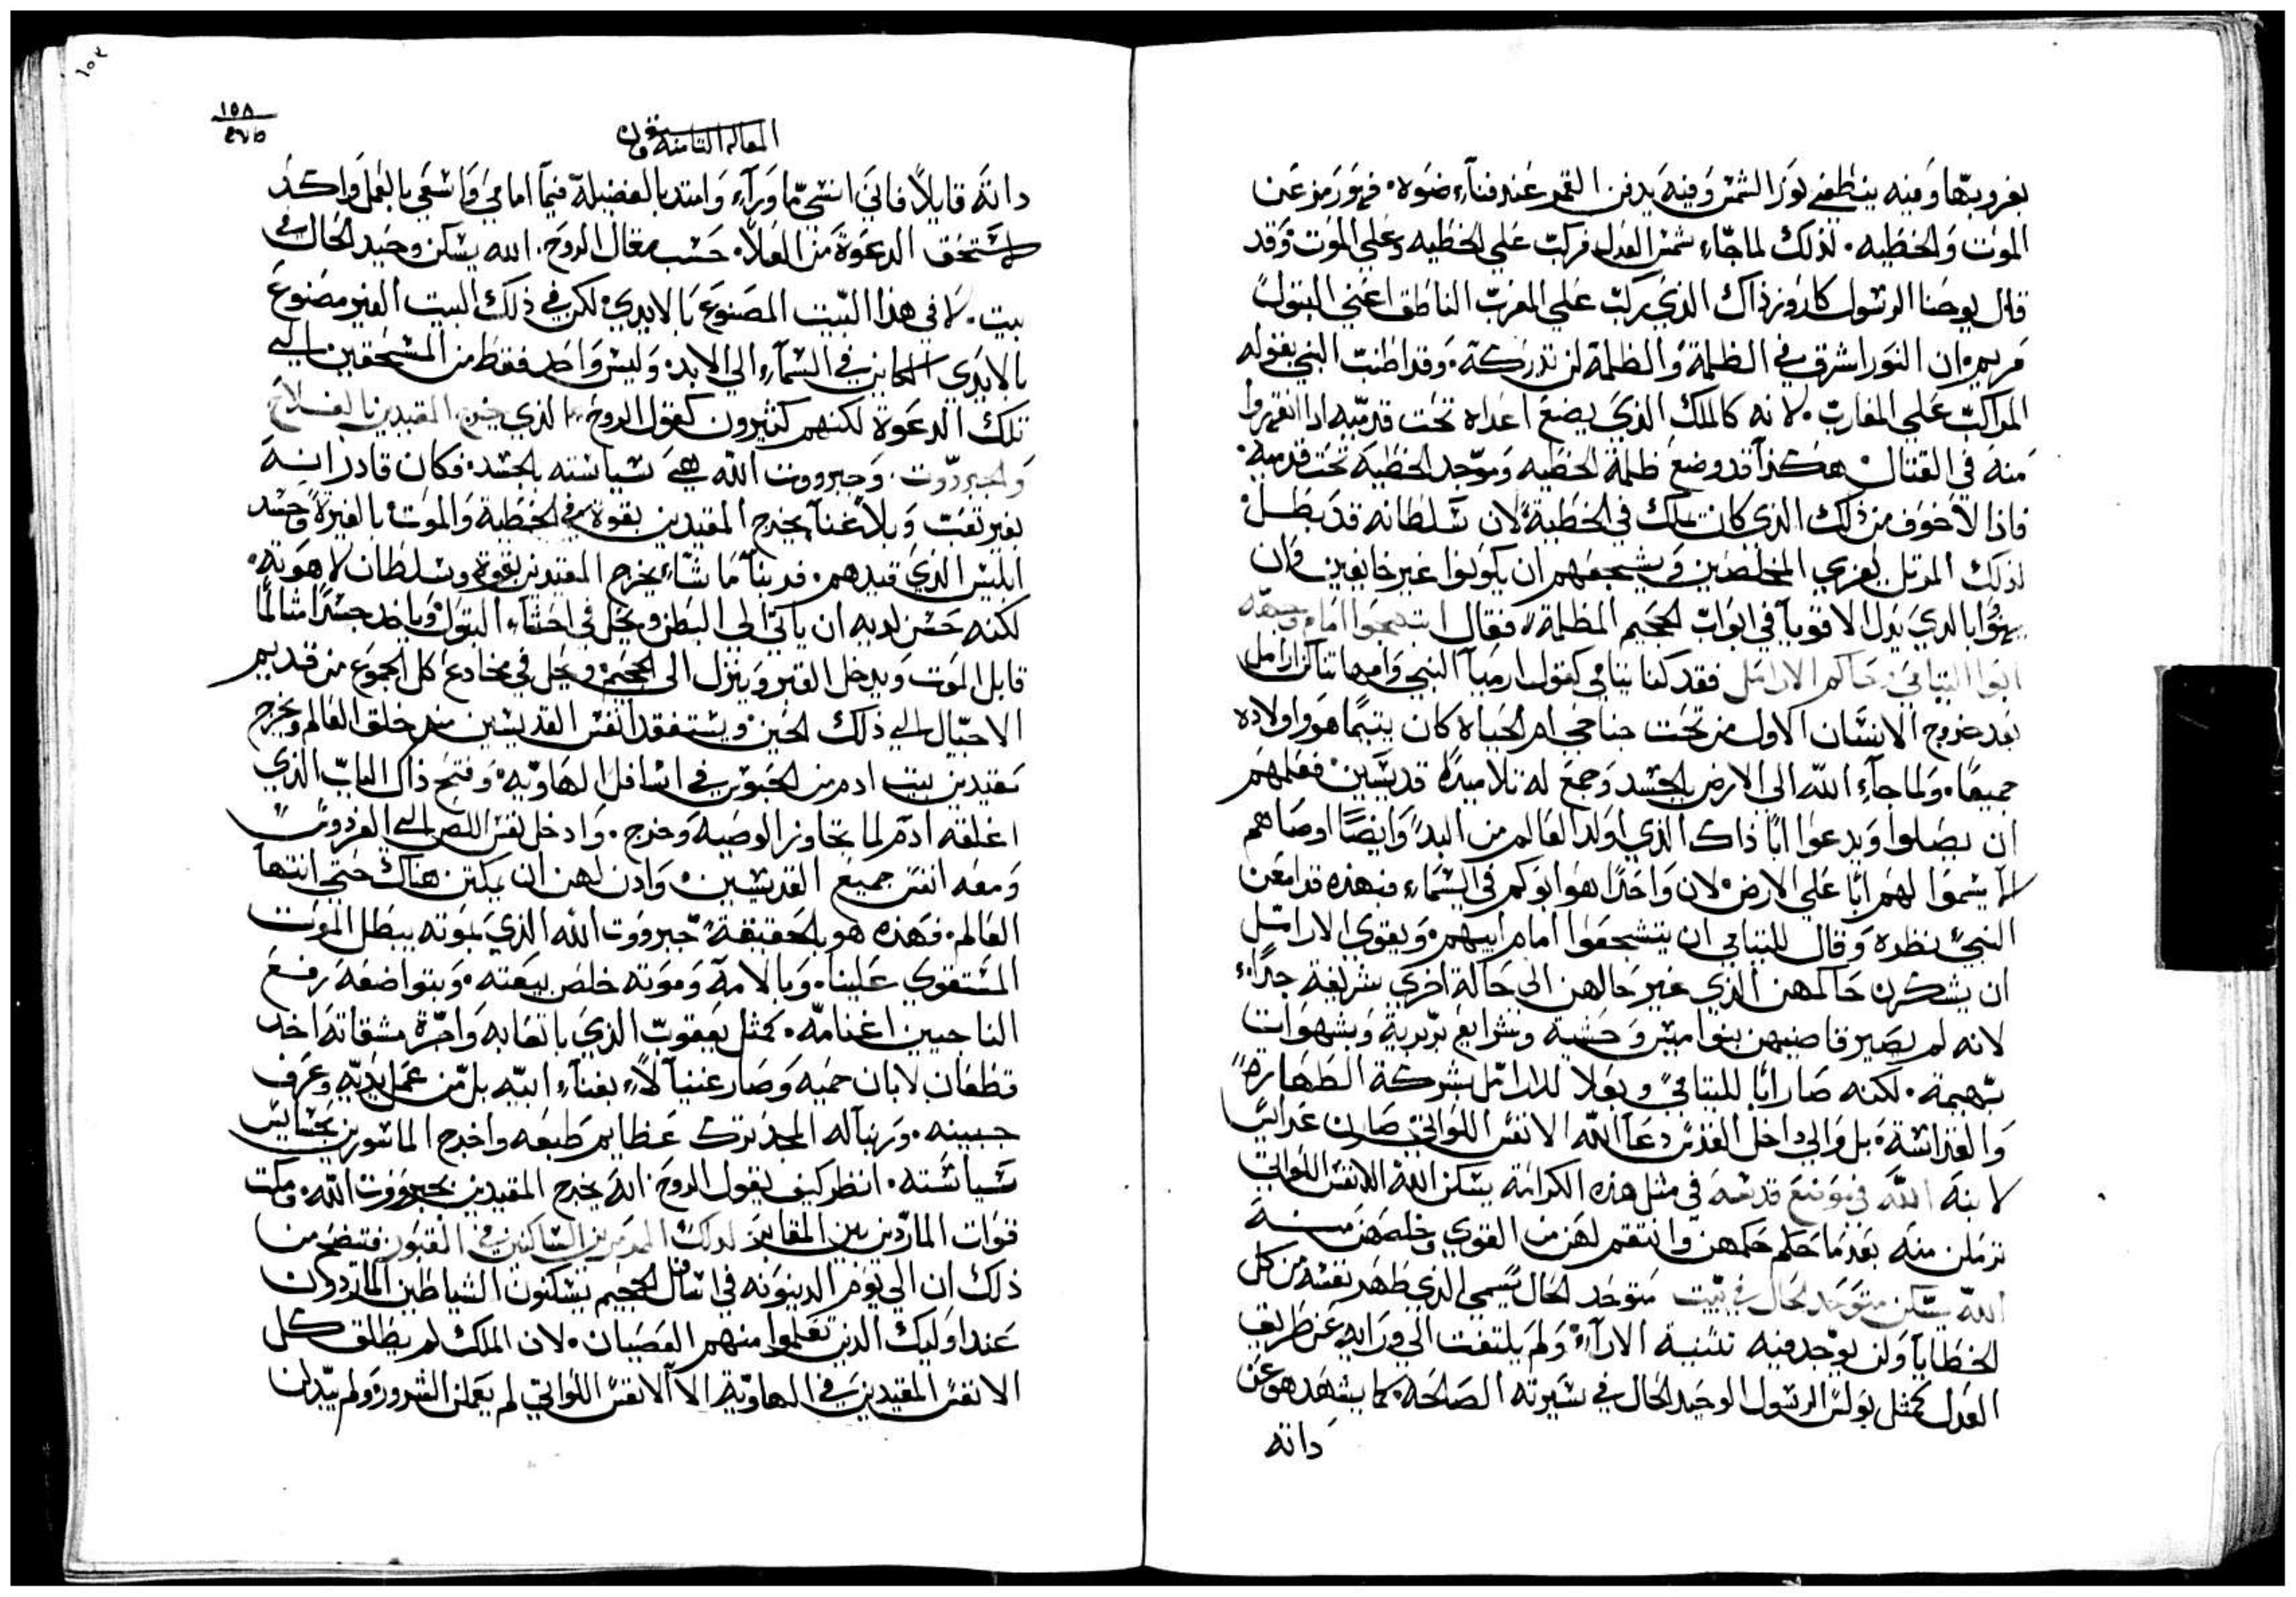 بغروبها ومنه ينطفي نور الشمس وفيه يدفن القمر عند فناء ضوه. فهو رمز عن
الموت والخطيه. لذلك لما جاء شمس العدل فركب علي الخطيه وعلي الموت وقد
قال يوحنا الرسول كاروز ذاك الذي ركب علي المغرب الناطق اعني البتول
مريم. ان النور اشرق في الظلمة والظلمة لن تدركة. وقد اطنب النبي بقوله
الراكب علي المغارب. لانه كالملك الذي يضع اعداه تحت قدميه اذا انقهروا
منه في القتال هكذا قد وضع ظلمة الخطيه وموجد الخطية تحت قدميه.
فاذا لا خوف من ذلك الذي كان يملك في الخطية. لان سلطانه قد بطل
لذلك المرتل يعزي المخلصين ويشجعهم ان يكونوا غير خايفين وان
بالذي نزل الاقويا في ابواب الجحيم المظلمة، فقال ابتهجوا امام وجهه
ابوا اليتامي وحاكم الارامل فقد كنا يتامي كقول ارميا النبي وامهاتنا كالارامل
بعد خروج الانسان الاول من تحت جناحي ام الحياة كان يتيما هو واولاده
جميعا. ولما جاء الله الي الارض بالجسد وجمع له تلاميدا قديسين فعلمهم
ان يصلوا ويدعوا ابا ذاك الذي اولد العالم من البدء وايضا اوصاهم
الا يسموا لهم ابا علي الارض لان واحدا هو ابوكم في السماء. فبهذه قد امعن
النبي نظره وقال لليتامي ان يتشجعوا امام ابيهم. ويقوي الارامل
ان يشكرن حاكمهن الذي غير حالهن الي حالة اخري شريفة جدا
لانه لم يصير قاضيهن بنواميس وحشية وبشرايع بربرية وبشهوات
بهيمة. لكنه صار ابا لليتامي وبعلا للارامل بشركة الطهارة
والقداسة. بل والي داخل القدس دعا الله الانفس اللواتي صارن عرايس
لابنه الله في موضع قدسه في مثل هذه الكرامة يسكن الله الانفس اللواتي
ترملن منه بعد ما حكم حكمهن وانتقم لهن من القوي وخلصهن منه
الله يسكن متوحد الحال في بيت متوحد الحال يسمي الذي طهر نفسه من كل
الخطايا ولن يوجد فيه تثنية الاراء ولم يلتفت الي ورايه عن طريق
العدل كمثل بولس الرسول الوحيد الحال في سيرته الصالحة. كما يشهد هو عن
داته
١٥٨
المقالة الثامنة
داته قايلا فاني انسي ما وراء وامتد بالفضيلة فيما امامي واسعي بالعمل واكد
لاستحق الدعوة من العلاء حسب مقال الروح. الله يسكن وحيد الحال في
بيت. لا في هذا البيت المصنوع بالايدي لكن في ذلك البيت الغير مصنوع
بالايدي الكاين في السماء الي الابد. وليس واحد فقط من المستحقين الي
تلك الدعوة لكنهم كثيرون كقول الروح الذي يخرج المقيدين بالفلاح
والجبروت. وجبرووت الله هي سياسته بالجسد. فكان قادر انه
بغير تعب وبلا عنا يخرج المقيدين بقوة في الخطية والموت بالغيرة وحسد
ابليس الذي قيدهم. فربنا ما شاء يخرج المقيدين بقوة وسلطان لاهوته
لكنه حسن لديه ان ياتي الي البطن ويحل في احشاء البتول وياخد جسدا متالما
قابل الموت ويدخل القبر وينزل الي الجحيم ويحل في مخادع كل الجموع من قديم
الاجيال الي ذلك الحين ويستفقد انفس القديسين منذ خلق العالم ويخرج
مقيدين بيت ادم من الحبوس في اسافل الهاويه وفتح ذاك الباب الذي
اغلقه ادم لما تجاوز الوصيه وخرج. وادخل نفس اللص الي الفردوس
ومعه انفس جميع القديسين وادن لهن ان يمكتن هناك حتي انتها
العالم. فهذه هو بالحقيقة جبرووت الله الذي بموته يبطل الموت
المستقوي علينا. وبالامه وموته خلص بيعته. وبتواضعه رفع
الناجيين اغنامه. كمثل يعقوب الذي باتعابه وامرة مشقاته اخد
قطعان لابان حميه وصار غنيا لا بغناء ابيه بل من عمل يديه وعرق
جبينه. وربنا له المجد ترك عظايم طبعه واخرج الماسورين بخسايس
سياسته. انظر كيف يقول الروح انه يخرج المقيدين بجبرووت الله. ومكت
قوات الماردين بين المقابر لذلك المردة الساكنين في القبور فتتضح من
ذلك ان الي يوم الدينونه في اسافل الجحيم يسكنون الشياطين الماردون
عند اوليك الذين تعلموا منهم العصيان. لان الملك لم يطلق كل
الانفس المقيدين في الهاوية الا الانفس اللواتي لم يعملن الشرور ولم يبدلن